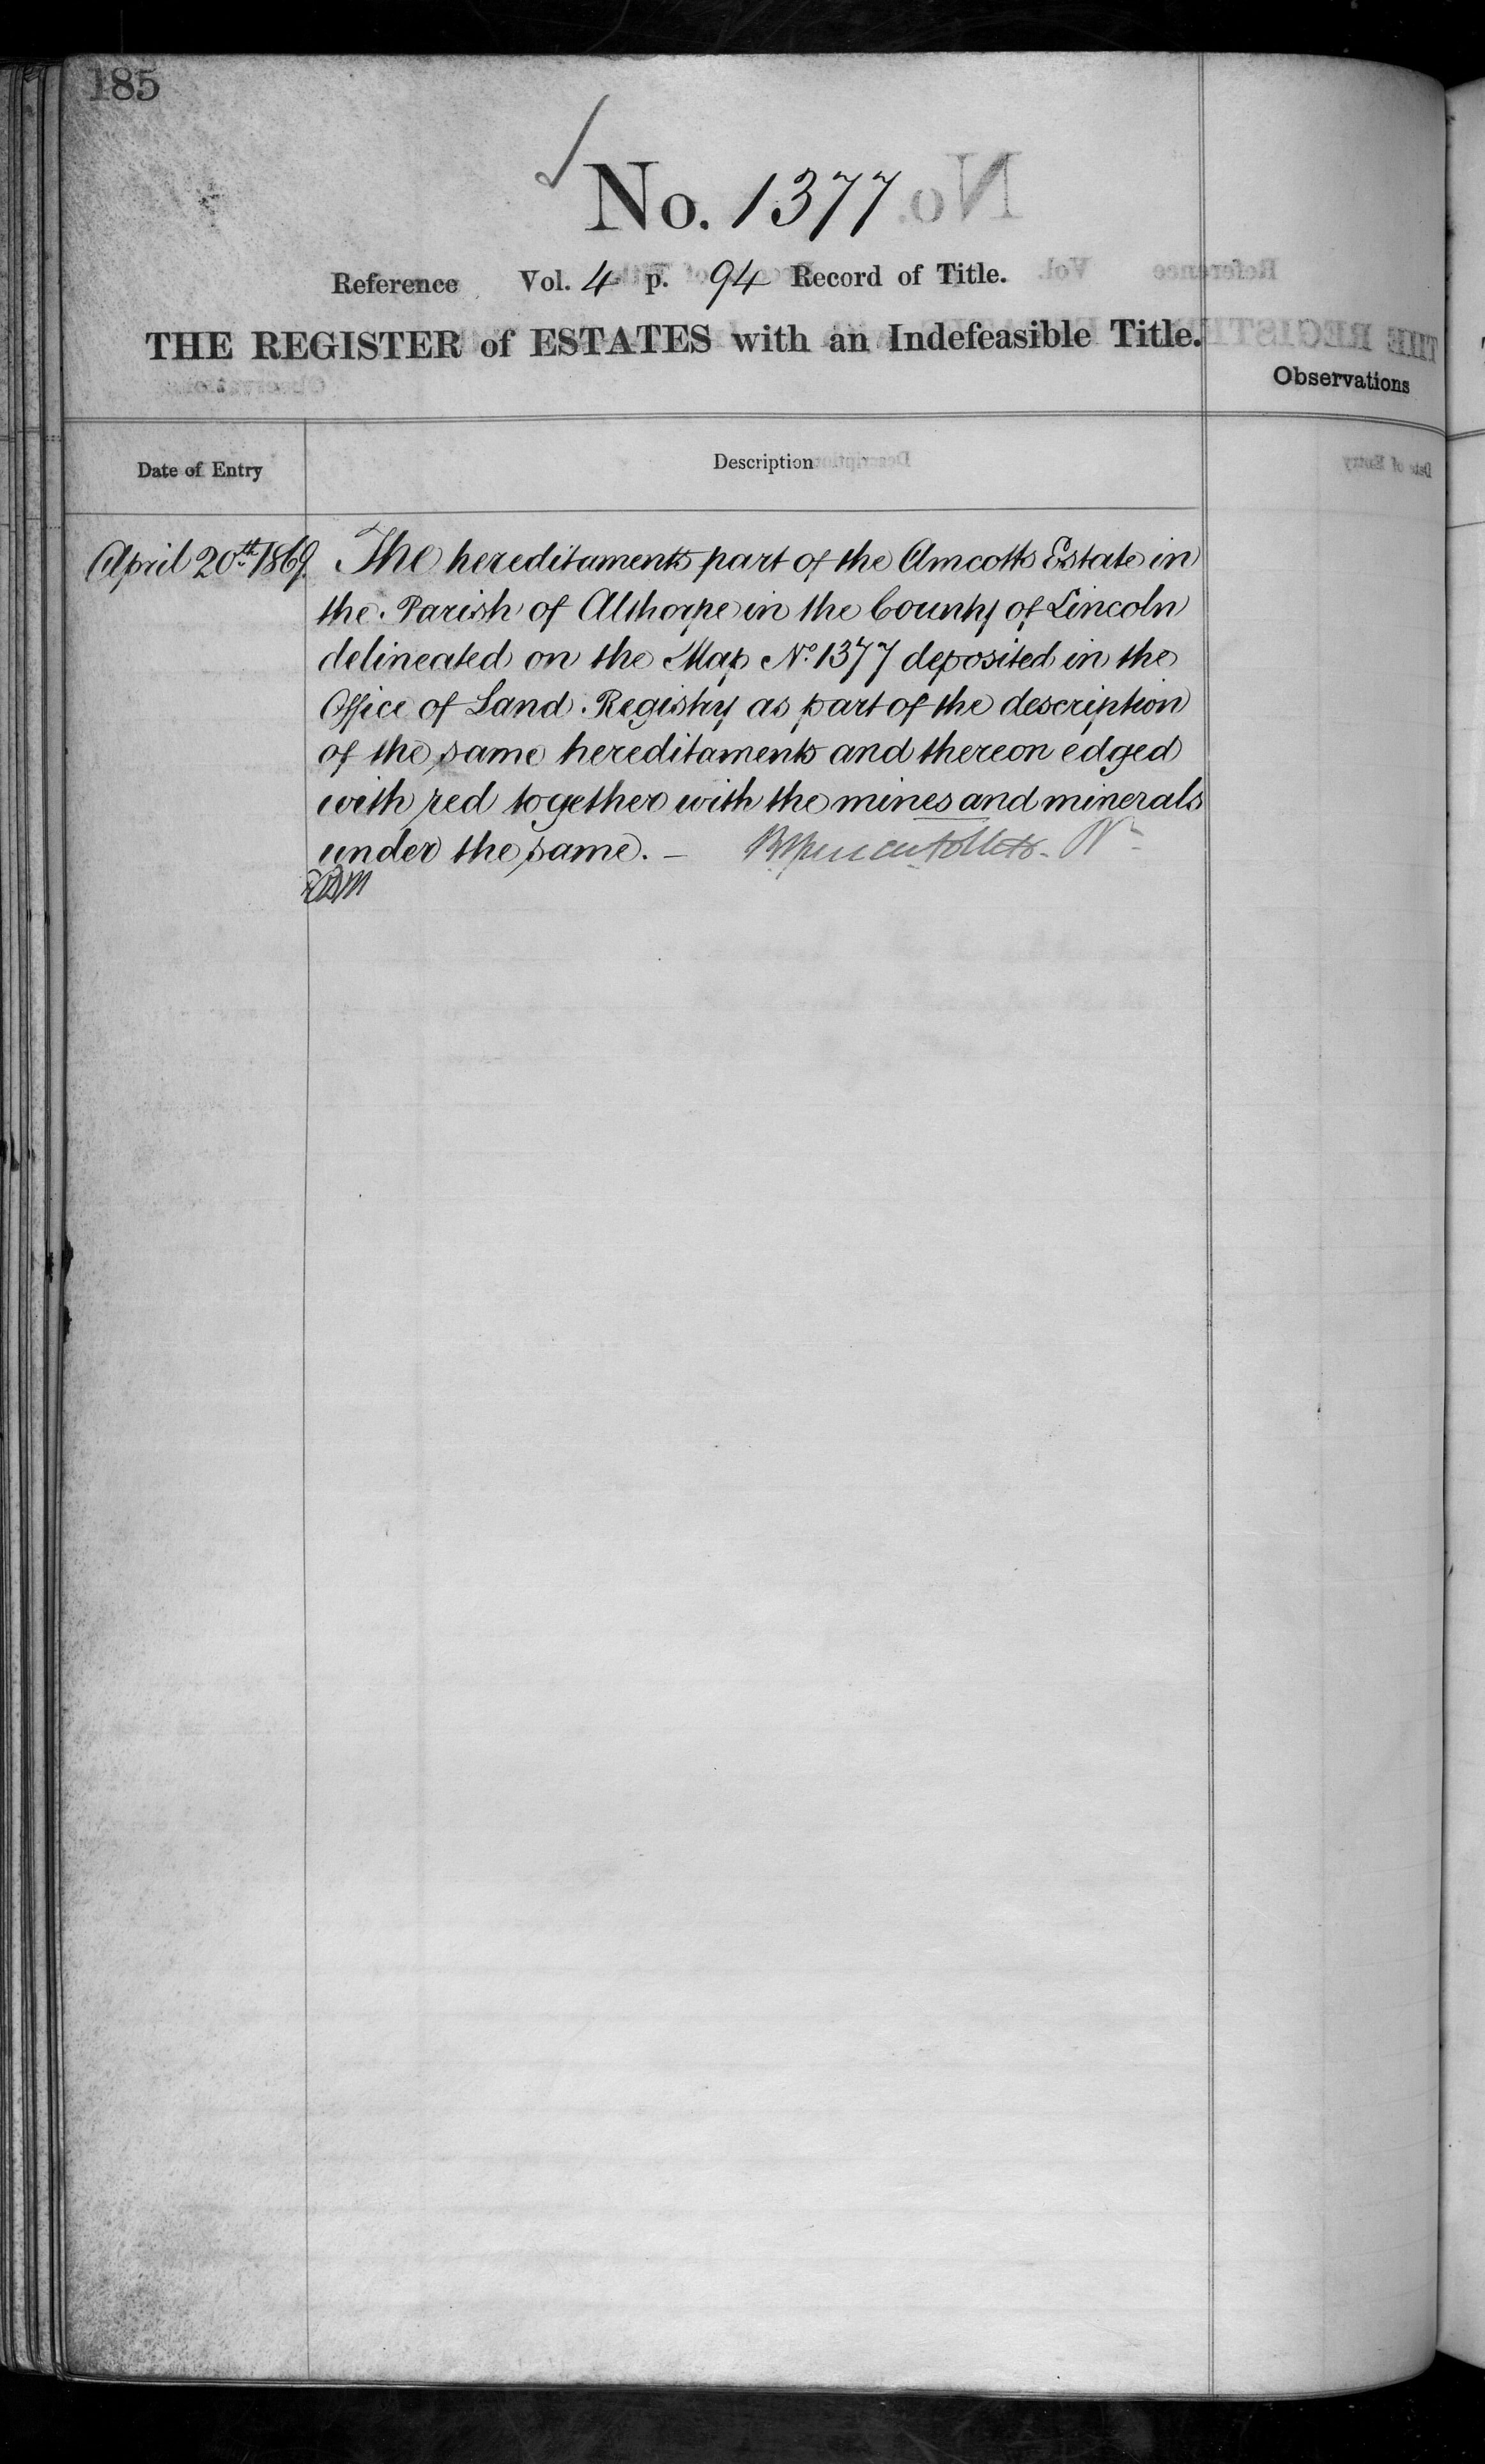 185
No. 1377
Reference Vol. 4 p. 94 Record of Title.
THE REGISTER of ESTATES with an Indefeasible Title.
Observations
Date of Entry
Description
April 20th 1869. The hereditaments part of the Amcotts Estate in
the Parish of Althorpe in the County of Lincoln
delineated on the Map No. 1377 deposited in the
Office of Land Registry as part of the description
of the same hereditaments and thereon edged
with red together with the mines and minerals
under the same. –